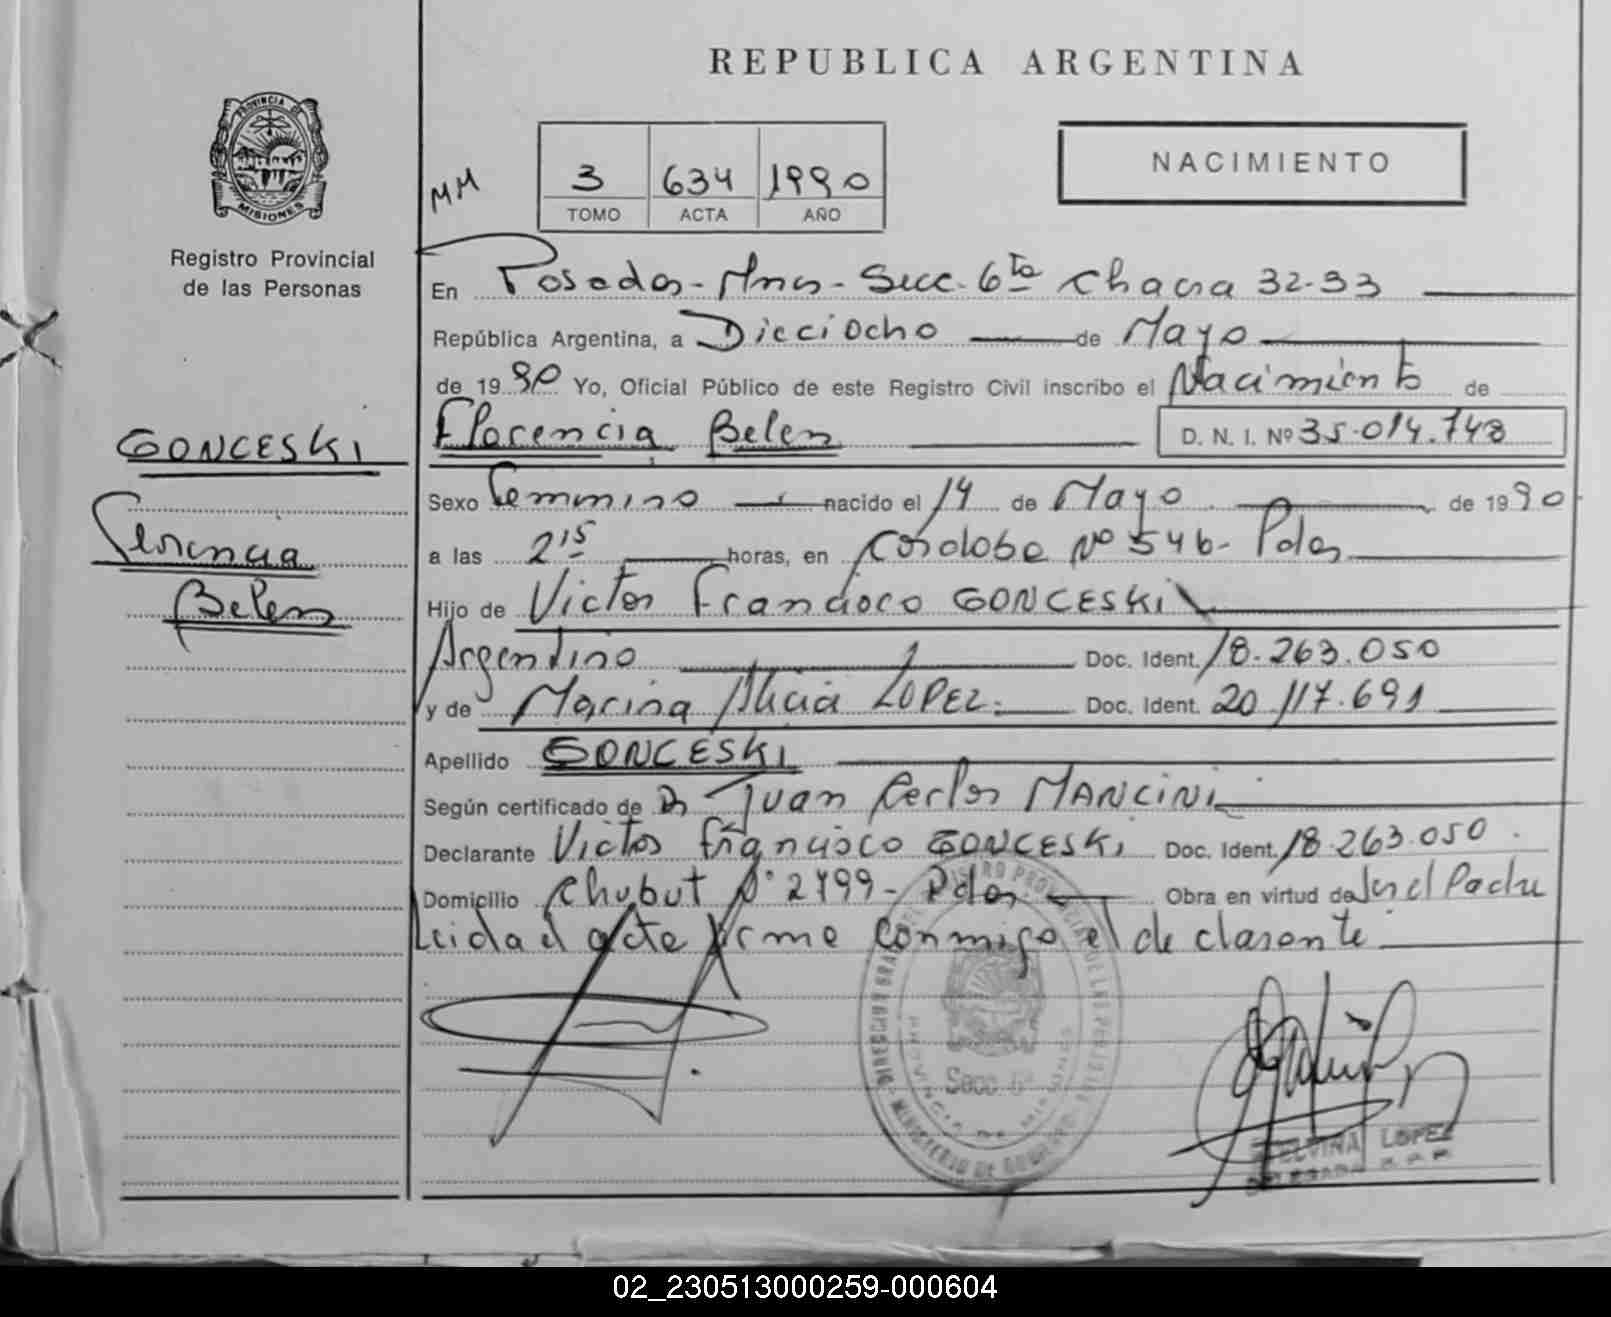 REPUBLICA ARGENTINA
PROVINCIA DE
MISIONES
Registro Provincial
de las Personas
MM
3 634 1990
TOMO ACTA AÑO
NACIMIENTO
En Posadas - Mnes - Secc. 6ta Chacra 32-33
República Argentina, a Dieciocho de Mayo
de 1990 Yo, Oficial Público de este Registro Civil inscribo el Nacimiento de
GONCESKI
Florencia
Belen
Florencia Belen D. N. I. Nº 35.014.748
Sexo Femenino nacido el 14 de Mayo de 1990
a las 2 15 horas, en Cordoba Nº 546 - Pdas
Hijo de Victor Francisco GONCESKI
Argentino Doc. Ident. 18.263.050
y de Marina Alicia LOPEZ Doc. Ident. 20.117.691
Apellido GONCESKI
Según certificado de Dr Juan Carlos MANCINI
Declarante Victor Francisco GONCESKI Doc. Ident. 18.263.050.
Domicilio Chubut Nº 2499 - Pdas. Obra en virtud de Ser el Padre
Leida el acta firma conmigo el declarante
Secc. 6ª
PROVINCIA DE MISIONES
MINISTERIO DE GOBIERNO
ELVINA LOPEZ
02_230513000259-000604